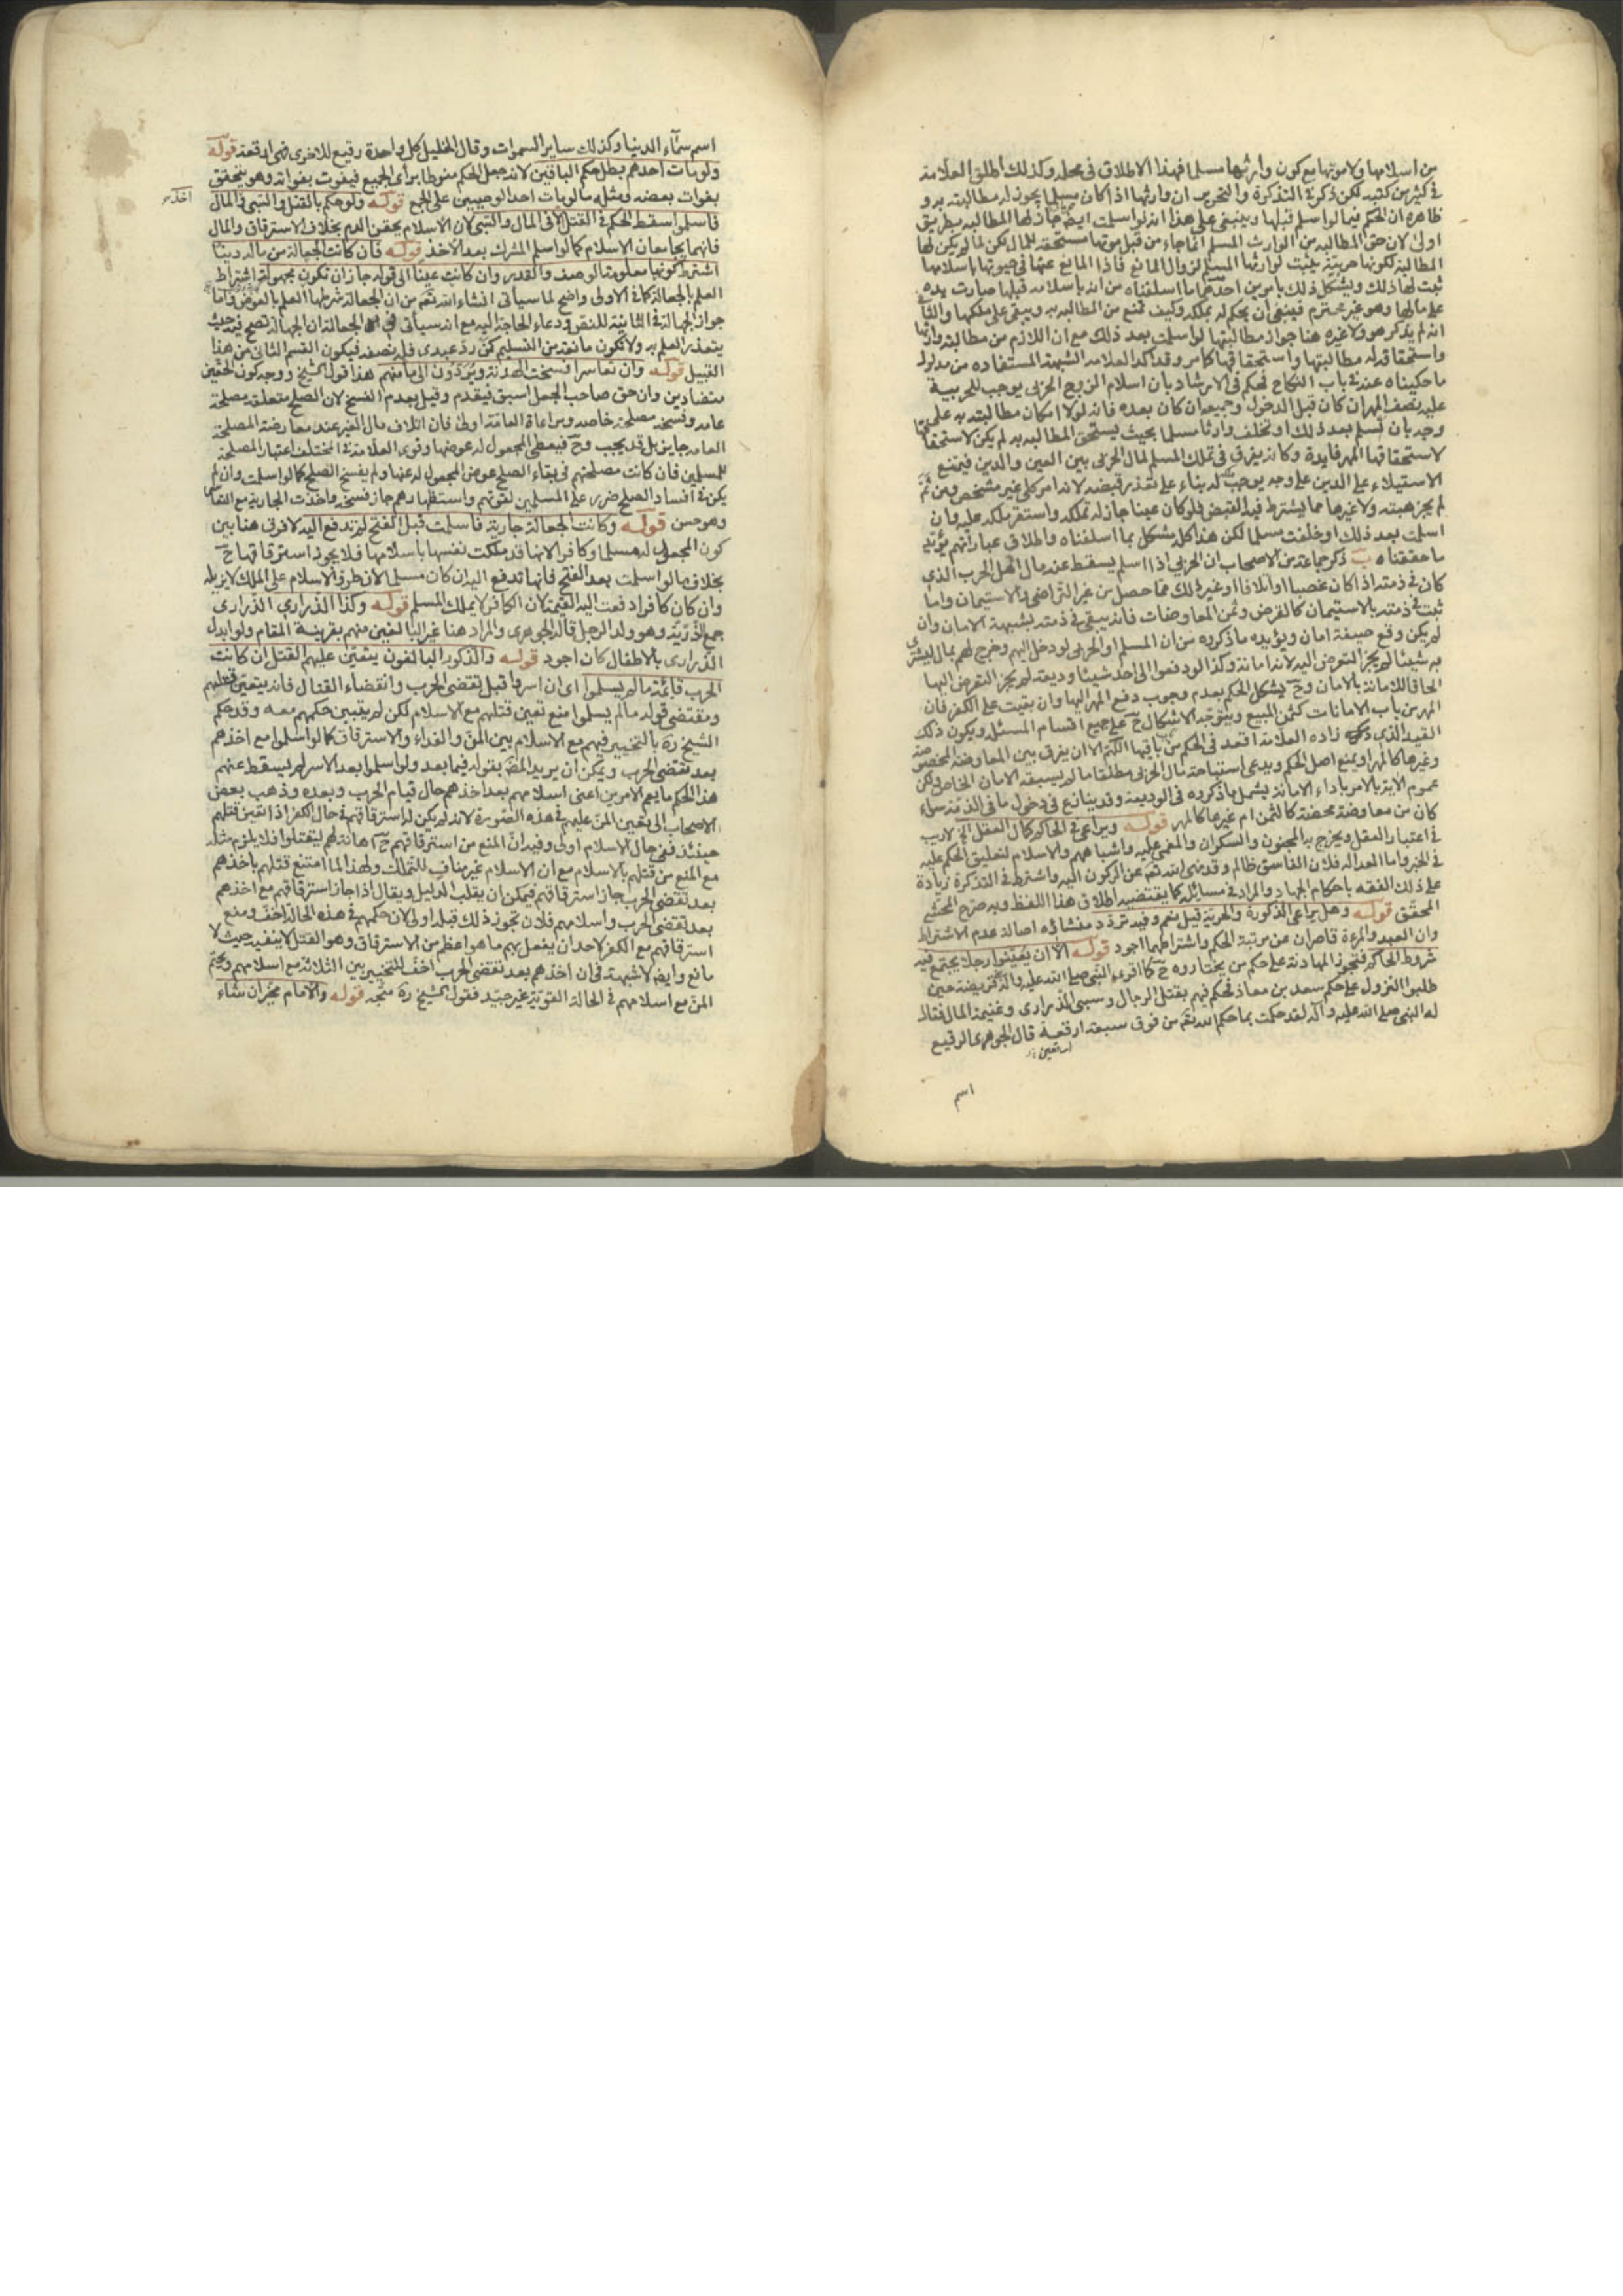 من اسلامها ولا موتها مع كون وارثها مسلما فهذا الاطلاق في محله وكذلك اطلق العلامة
في كثير من كتبه لكن ذكر في التذكرة والتحرير ان وارثها اذا كان مسلما يجوز له مطالبته به و
ظاهره ان الحكم فيما لو اسلم قبلها وينبغي على هذا انه لو اسلمت ايضا جاز لها المطالبه بطريق
اولى لان حق المطالبه من الوارث المسلم انما جاء من قبل موتها مستحقه للمال لكن لما لم يكن لها
المطالبة لكونها حربية يثبت لوارثها المسلم لزوال المانع فاذا المانع عنها في حيوتها باسلامها
ثبت لها ذلك ويشكل ذلك بامرين احدهما ما اسلفناه من انه باسلامه قبلها صارت يده
على مالها وهو غير محترم فينبغي ان يحكم له بملكه وكيف تمنع من المطالبه به ويبقى على ملكها والثاني
انه لم يذكر هو ولا غيره هنا جواز مطالبتها لو اسلمت بعد ذلك مع ان اللازم من مطالبة وارثها
واستحقاقه له مطالبتها واستحقاقها كما مر وقد اكد العلامه الشبهة المستفاده من مدلول
ما حكيناه عنه في باب النكاح فحكم في الارشاد بان اسلام الزوج الحربي يوجب للحربية
عليه نصف المهر ان كان قبل الدخول وجميعه ان كان بعده فانه لولا امكان مطالبته به على
وجه بان تسلم بعد ذلك او تخلف وارثا مسلما بحيث يستحق المطالبه به لم يكن لاستحقاقها
لاستحقاقها المهر فايدة وكانه يفرق في تملك المسلم لمال الحربي بين العين والدين فيمتنع
الاستيلاء على الدين على وجه يوجب له بناء على تعذر قبضه لانه امر كلي غير مشخص ومن ثم
لم يجز هبته ولا غيرها مما يشترط فيه القبض فلو كان عينا جاز له تملكه واستقر ملكه عليه وان
اسلمت بعد ذلك او خلفت مسلما لكن هذا كله مشكل بما اسلفناه واطلاق عباراتهم يؤيد
ما حققناه ب ذكر جماعة من الاصحاب ان الحربي اذا اسلم يسقط عنه مال اهل الحرب الذي
كان في ذمته اذا كان غصبا او اتلافا او غير ذلك مما حصل من غير التراضي والاستيمان واما
ثبت في ذمته بالاستيمان كالقرض وثمن المعاوضات فانه يبقى في ذمته بشبهة الامان وان
لم يكن وقع صيغة امان ويؤيده ما ذكروه من ان المسلم او الحربي لو دخل اليهم وخرج لهم بمال ليشتري
به شيئا لم يجز التعرض اليه لانه امانة وكذا لو دفعوا الى احد شيئا وديعة لم يجز التعرض اليها
الحاقا للامانة بالامان وح يشكل الحكم بعدم وجوب دفع المهر اليها وان بقيت على الكفر فان
المهر من باب الامانات كثمن المبيع ويتوجه الاشكال ح على جميع اقسام المسئله ويكون ذلك
القيد الذي زاده العلامة اقعد في الحكم من باقيها الكثيرة الا ان يفرق بين المعاوضة المحضة
وغيرها كالمهر او يمنع اصل الحكم ويدعى استباحة مال الحربي مطلقا ما لم يسبقه الامان الخاص ولكن
عموم الاية بالامر باداء الامانة يشمل ما ذكروه في الوديعة وقد ينازع في دخول ما في الذمة سواء
كان من معاوضة محضة كالثمن ام غيرها كالمهر قوله ويراعى في الحاكم كمال العقل الخ لا ريب
في اعتبار العقل ويخرج به المجنون والسكران والمغمى عليه واشباههم والاسلام لتعليق الحكم عليه
في الخبر واما العدالة فلان الفاسق ظالم وقد نهى الله تعم عن الركون اليه واشترط في التذكرة زيادة
على ذلك الفقه باحكام الجهاد والمراد في مسائله كما يقتضيه اطلاق هذا اللفظ وبه صرح المحشي
المحقق قوله وهل يراعى الذكورة والحرية قيل نعم وفيه تردد منشاؤه اصالة عدم الاشتراط
وان العبد والمرءة قاصران عن مرتبة الحكم واشتراطهما اجود قوله الا ان يعينوا رجلا يجتمع فيه
شروط الحاكم فتجوز المهادنة على حكم من يختاروه ح كما اقره النبي صلى الله عليه واله قريضة حين
طلبوا النزول على حكم سعد بن معاذ فحكم فيهم بقتل الرجال وسبي الذراري وغنيمة المال فقال
له النبي صلى الله عليه وآله لقد حكمت بما حكم الله تعم من فوق سبعة ارقعة قال الجوهري الرقيع
اسم
اسم سماء الدنيا وكذلك ساير السموات وقال الخليل كل واحدة رقيع للاخرى فهي ارقعة قوله
ولو مات احدهم بطل حكم الباقين لانه جعل الحكم منوطا برأي الجميع فيفوت بفواته وهو يتحقق
بفوات بعضه ومثله ما لو مات احد الوصيين على الجمع قوله ولو حكم بالقتل والسبي والمال
فاسلموا سقط الحكم في القتل لا في المال والسبي لان الاسلام يحقن الدم بخلاف الاسترقاق والمال
فانهما يجامعان الاسلام كما لو اسلم المشرك بعد الاخذ قوله فان كانت الجعالة من ماله دينا
اشترط كونها معلومة الوصف والقدر وان كانت عينا الى قوله جاز ان تكون مجهولة اشتراط
العلم بالجعالة كما في الاولى واضح لما سيأتي انشاء الله تعم من ان الجعالة شرطها العلم بالعوض واما
جواز الجهالة في الثانية للنص ودعاء الحاجة اليه مع انه سيأتي في الجعالة ان الجهالة تصح فيه حيث
يتعذر العلم به ولا تكون مانعة من التسليم كمن رد عبدي فله نصفه فيكون القسم الثاني من هذا
القبيل قوله وان تعاسرا فسخت الهدنة ويردون الى مأمنهم هذا قول الشيخ ووجه كون الحقين
متضادين وان حق صاحب الجعل اسبق فيقدم وقيل بعدم الفسخ لان الصلح متعلق بمصلحة
عامه وفسخه مصلحة خاصه ومراعاة العامة اولى فان اتلاف مال الغير عند معارضة المصلحة
العامه جايز بل قد يجب وح فيعطى المجعول له عوضها وقوى العلامة في المختلف اعتبار المصلحة
للمسلمين فان كانت مصلحتهم في بقاء الصلح عوض المجعول له عنها ولم يفسخ الصلح كما لو اسلمت وان لم
يكن في افساد الصلح ضرر على المسلمين لقوتهم واستظهارهم جاز فسخه واخذت الجارية مع التعاسر
وهو حسن قوله وكانت الجعالة جارية فاسلمت قبل الفتح لم تدفع اليه لا فرق هنا بين
كون المجعول له مسلما وكافرا لانها قد ملكت نفسها باسلامها فلا يجوز استرقاقها ح
بخلاف ما لو اسلمت بعد الفتح فانها تدفع اليه ان كان مسلما لان طرو الاسلام على الملك لا يزيله
وان كان كافرا دفعت اليه القيمة لان الكافر لا يملك المسلم قوله وكذا الذراري الذراري
جمع الذرية وهو ولد الرجل قاله الجوهري والمراد هنا غير البالغين منهم بقرينة المقام ولو ابدل
الذراري بالاطفال كان اجود قوله والذكور البالغون يتعين عليهم القتل ان كانت
الحرب قائمة ما لم يسلموا اي ان اسروا قبل تقضي الحرب وانقضاء القتال فانه يتعين قتلهم
ومقتضى قوله ما لم يسلموا منع تعين قتلهم مع الاسلام لكن لم يتبين حكمهم معه وقد حكم
الشيخ ره بالتخيير فيهم مع الاسلام بين المن والفداء والاسترقاق كما لو اسلموا مع اخذهم
بعد تقضي الحرب ويمكن ان يريد المصنف بقوله فيما بعد ولو اسلموا بعد الاسر لم يسقط عنهم
هذا الحكم ما يعم الامرين اعني اسلامهم بعد اخذهم حال قيام الحرب وبعده وذهب بعض
الاصحاب الى تعين المن عليهم في هذه الصورة لانه لم يكن له استرقاقهم في حال الكفر اذا تعين قتلهم
حينئذ ففي حال الاسلام اولى وفيه ان المنع من استرقاقهم ح اهانة لهم ليقتلوا فلا يلزم مثله
مع المنع من قتلهم بالاسلام مع ان الاسلام غير مناف للتملك ولهذا لما امتنع قتلهم باخذهم
بعد تقضي الحرب جاز استرقاقهم فيمكن ان يقلب الدليل ويقال اذا جاز استرقاقهم مع اخذهم
بعد تقضي الحرب واسلامهم فلان تجوز ذلك قبله اولى لان حكمهم في هذه الحالة اخف ومنع
استرقاقهم مع الكفر لاحد ان يفعل بهم ما هو اعظم من الاسترقاق وهو القتل لا ينفيه حيث لا
مانع وايضا لا شبهة في ان اخذهم بعد تقضي الحرب اخف للتخيير بين الثلاثة مع اسلامهم وتحتم
المن مع اسلامهم في الحالة القوية غير جيد فقول الشيخ ره متجه قوله والامام مخير ان شاء